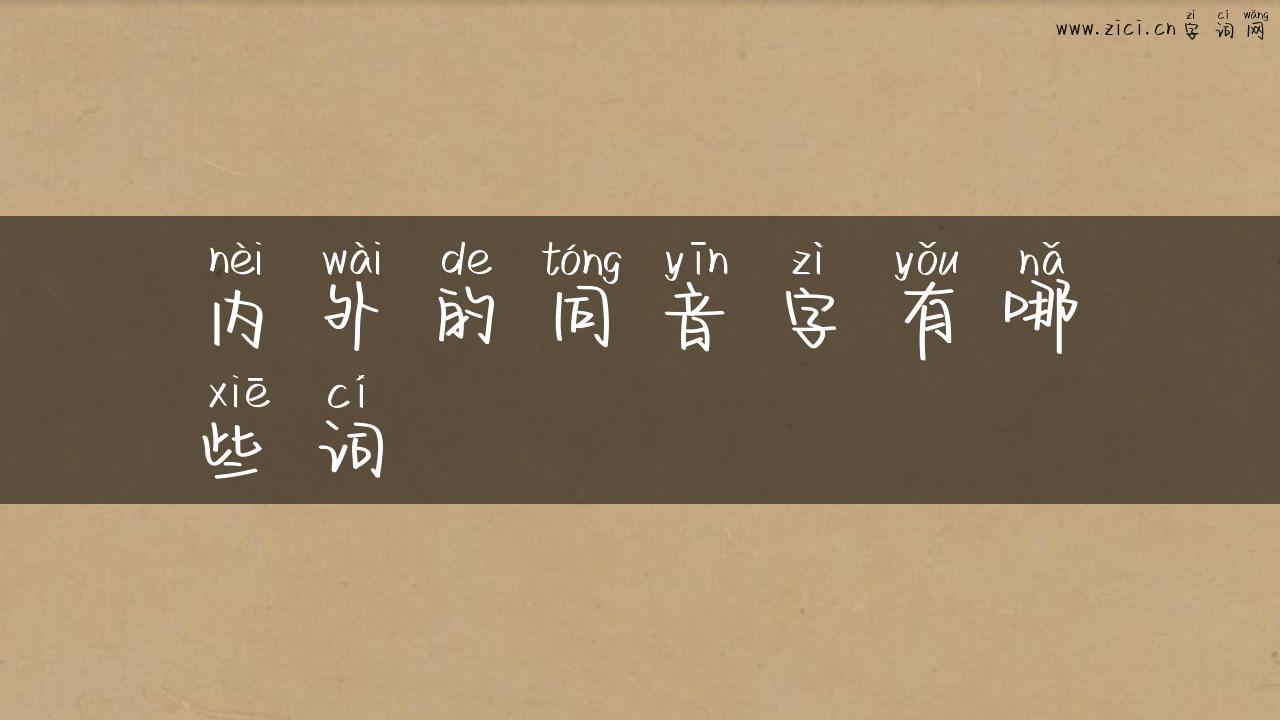 zì cí wǎng
www.zici.cn 字词网
nèi wài de tóng yīn zì yǒu nǎ
内外的同音字有哪
xiē cí
些词